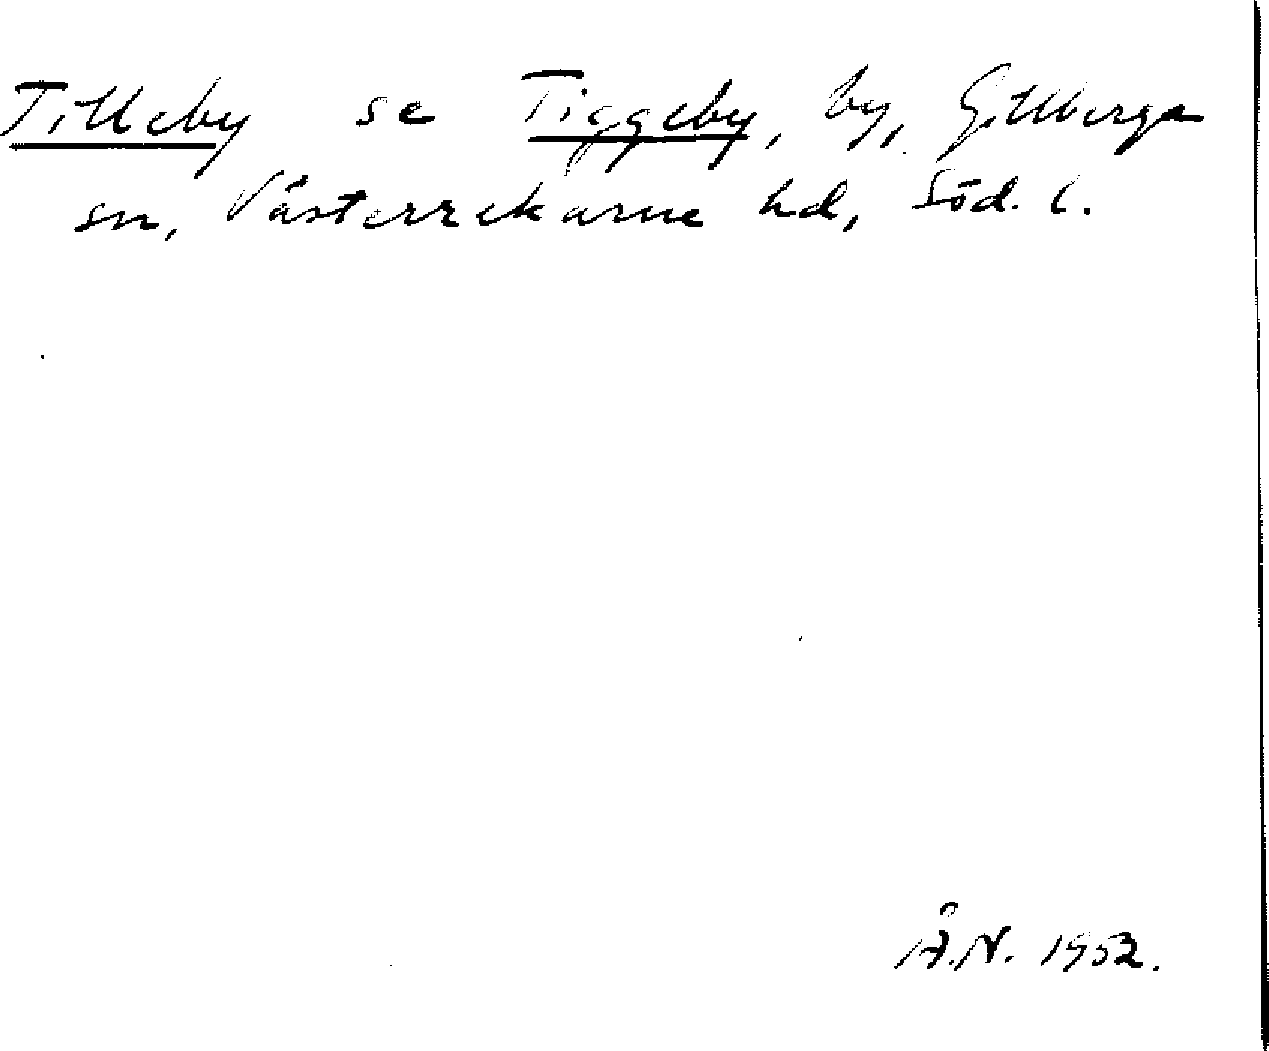 Tilleby se Tiggeby, by, Gillberga
sn, Västerrekarne hd, Söd. l.
Å.N. 1952.